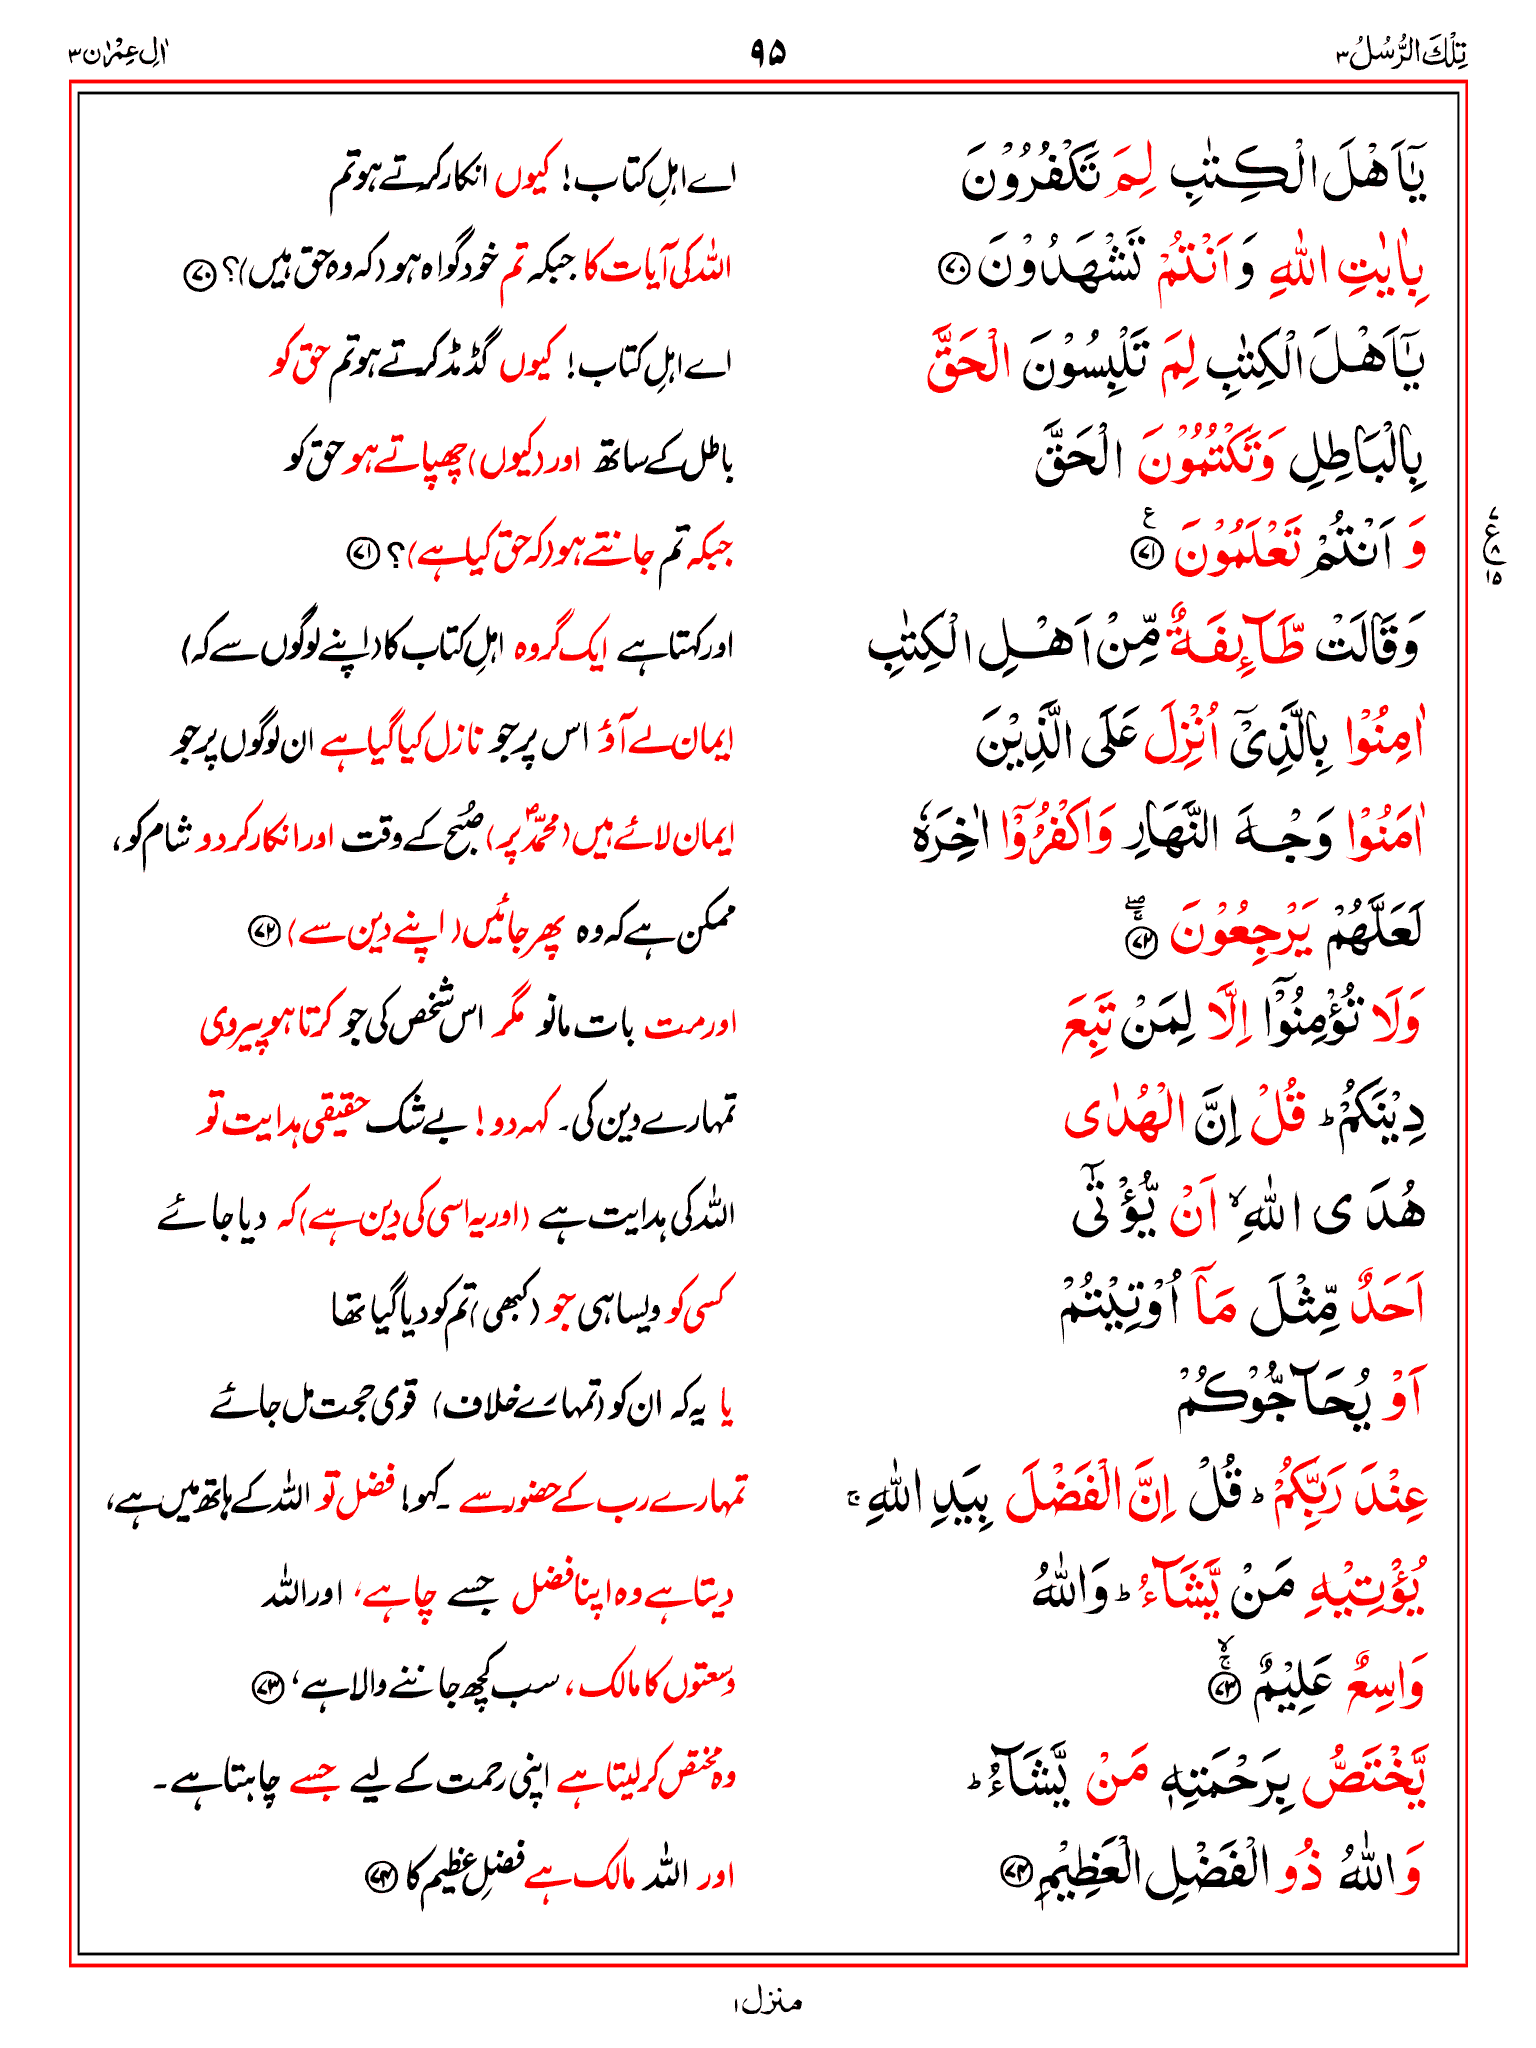 تِلْكَ الرُّسُلُ ۳
۹۵
اٰلِ عِمْرٰن ۳
يٰٓاَهْلَ الْكِتٰبِ لِمَ تَكْفُرُوْنَ
اے اہلِ کتاب! کیوں انکار کرتے ہو تم
بِاٰيٰتِ اللّٰهِ وَ اَنْتُمْ تَشْهَدُوْنَ ۷۰
اللہ کی آیات کا جبکہ تم خود گواہ ہو (کہ وہ حق ہیں)؟ ۷۰
يٰٓاَهْلَ الْكِتٰبِ لِمَ تَلْبِسُوْنَ الْحَقَّ
اے اہلِ کتاب! کیوں گڈمڈ کرتے ہو تم حق کو
بِالْبَاطِلِ وَتَكْتُمُوْنَ الْحَقَّ
باطل کے ساتھ اور (کیوں) چھپاتے ہو حق کو
وَ اَنْتُمْ تَعْلَمُوْنَ ۷۱
جبکہ تم جانتے ہو (کہ حق کیا ہے)؟ ۷۱
۷
ع
۸
۱۵
وَقَالَتْ طَّآئِفَةٌ مِّنْ اَهْلِ الْكِتٰبِ
اور کہتا ہے ایک گروہ اہلِ کتاب کا (اپنے لوگوں سے کہ)
اٰمِنُوْا بِالَّذِيْٓ اُنْزِلَ عَلَى الَّذِيْنَ
ایمان لے آؤ اس پر جو نازل کیا گیا ہے ان لوگوں پر جو
اٰمَنُوْا وَجْهَ النَّهَارِ وَاكْفُرُوْٓا اٰخِرَهٗ
ایمان لائے ہیں (محمدؐ پر) صُبح کے وقت اور انکار کر دو شام کو،
لَعَلَّهُمْ يَرْجِعُوْنَ ۷۲
ممکن ہے کہ وہ پھر جائیں (اپنے دین سے) ۷۲
وَلَا تُؤْمِنُوْٓا اِلَّا لِمَنْ تَبِعَ
اور مت بات مانو مگر اس شخص کی جو کرتا ہو پیروی
دِيْنَكُمْ ؕ قُلْ اِنَّ الْهُدٰى
تمہارے دین کی۔ کہہ دو! بے شک حقیقی ہدایت تو
هُدَى اللّٰهِ ۙ اَنْ يُّؤْتٰٓى
اللہ کی ہدایت ہے (اور یہ اسی کی دین ہے) کہ دیا جائے
اَحَدٌ مِّثْلَ مَآ اُوْتِيْتُمْ
کسی کو ویسا ہی جو (کبھی) تم کو دیا گیا تھا
اَوْ يُحَآجُّوْكُمْ
یا یہ کہ ان کو (تمہارے خلاف) قوی حجت مل جائے
عِنْدَ رَبِّكُمْ ؕ قُلْ اِنَّ الْفَضْلَ بِيَدِ اللّٰهِ ۚ
تمہارے رب کے حضور سے ۔کہو! فضل تو اللہ کے ہاتھ میں ہے،
يُؤْتِيْهِ مَنْ يَّشَآءُ ؕ وَاللّٰهُ
دیتا ہے وہ اپنا فضل جسے چاہے، اور اللہ
وَاسِعٌ عَلِيْمٌ ۷۳
وسعتوں کا مالک، سب کچھ جاننے والا ہے، ۷۳
يَّخْتَصُّ بِرَحْمَتِهٖ مَنْ يَّشَآءُ ؕ
وہ مختص کر لیتا ہے اپنی رحمت کے لیے جسے چاہتا ہے۔
وَ اللّٰهُ ذُو الْفَضْلِ الْعَظِيْمِ ۷۴
اور اللہ مالک ہے فضلِ عظیم کا ۷۴
منزل ۱